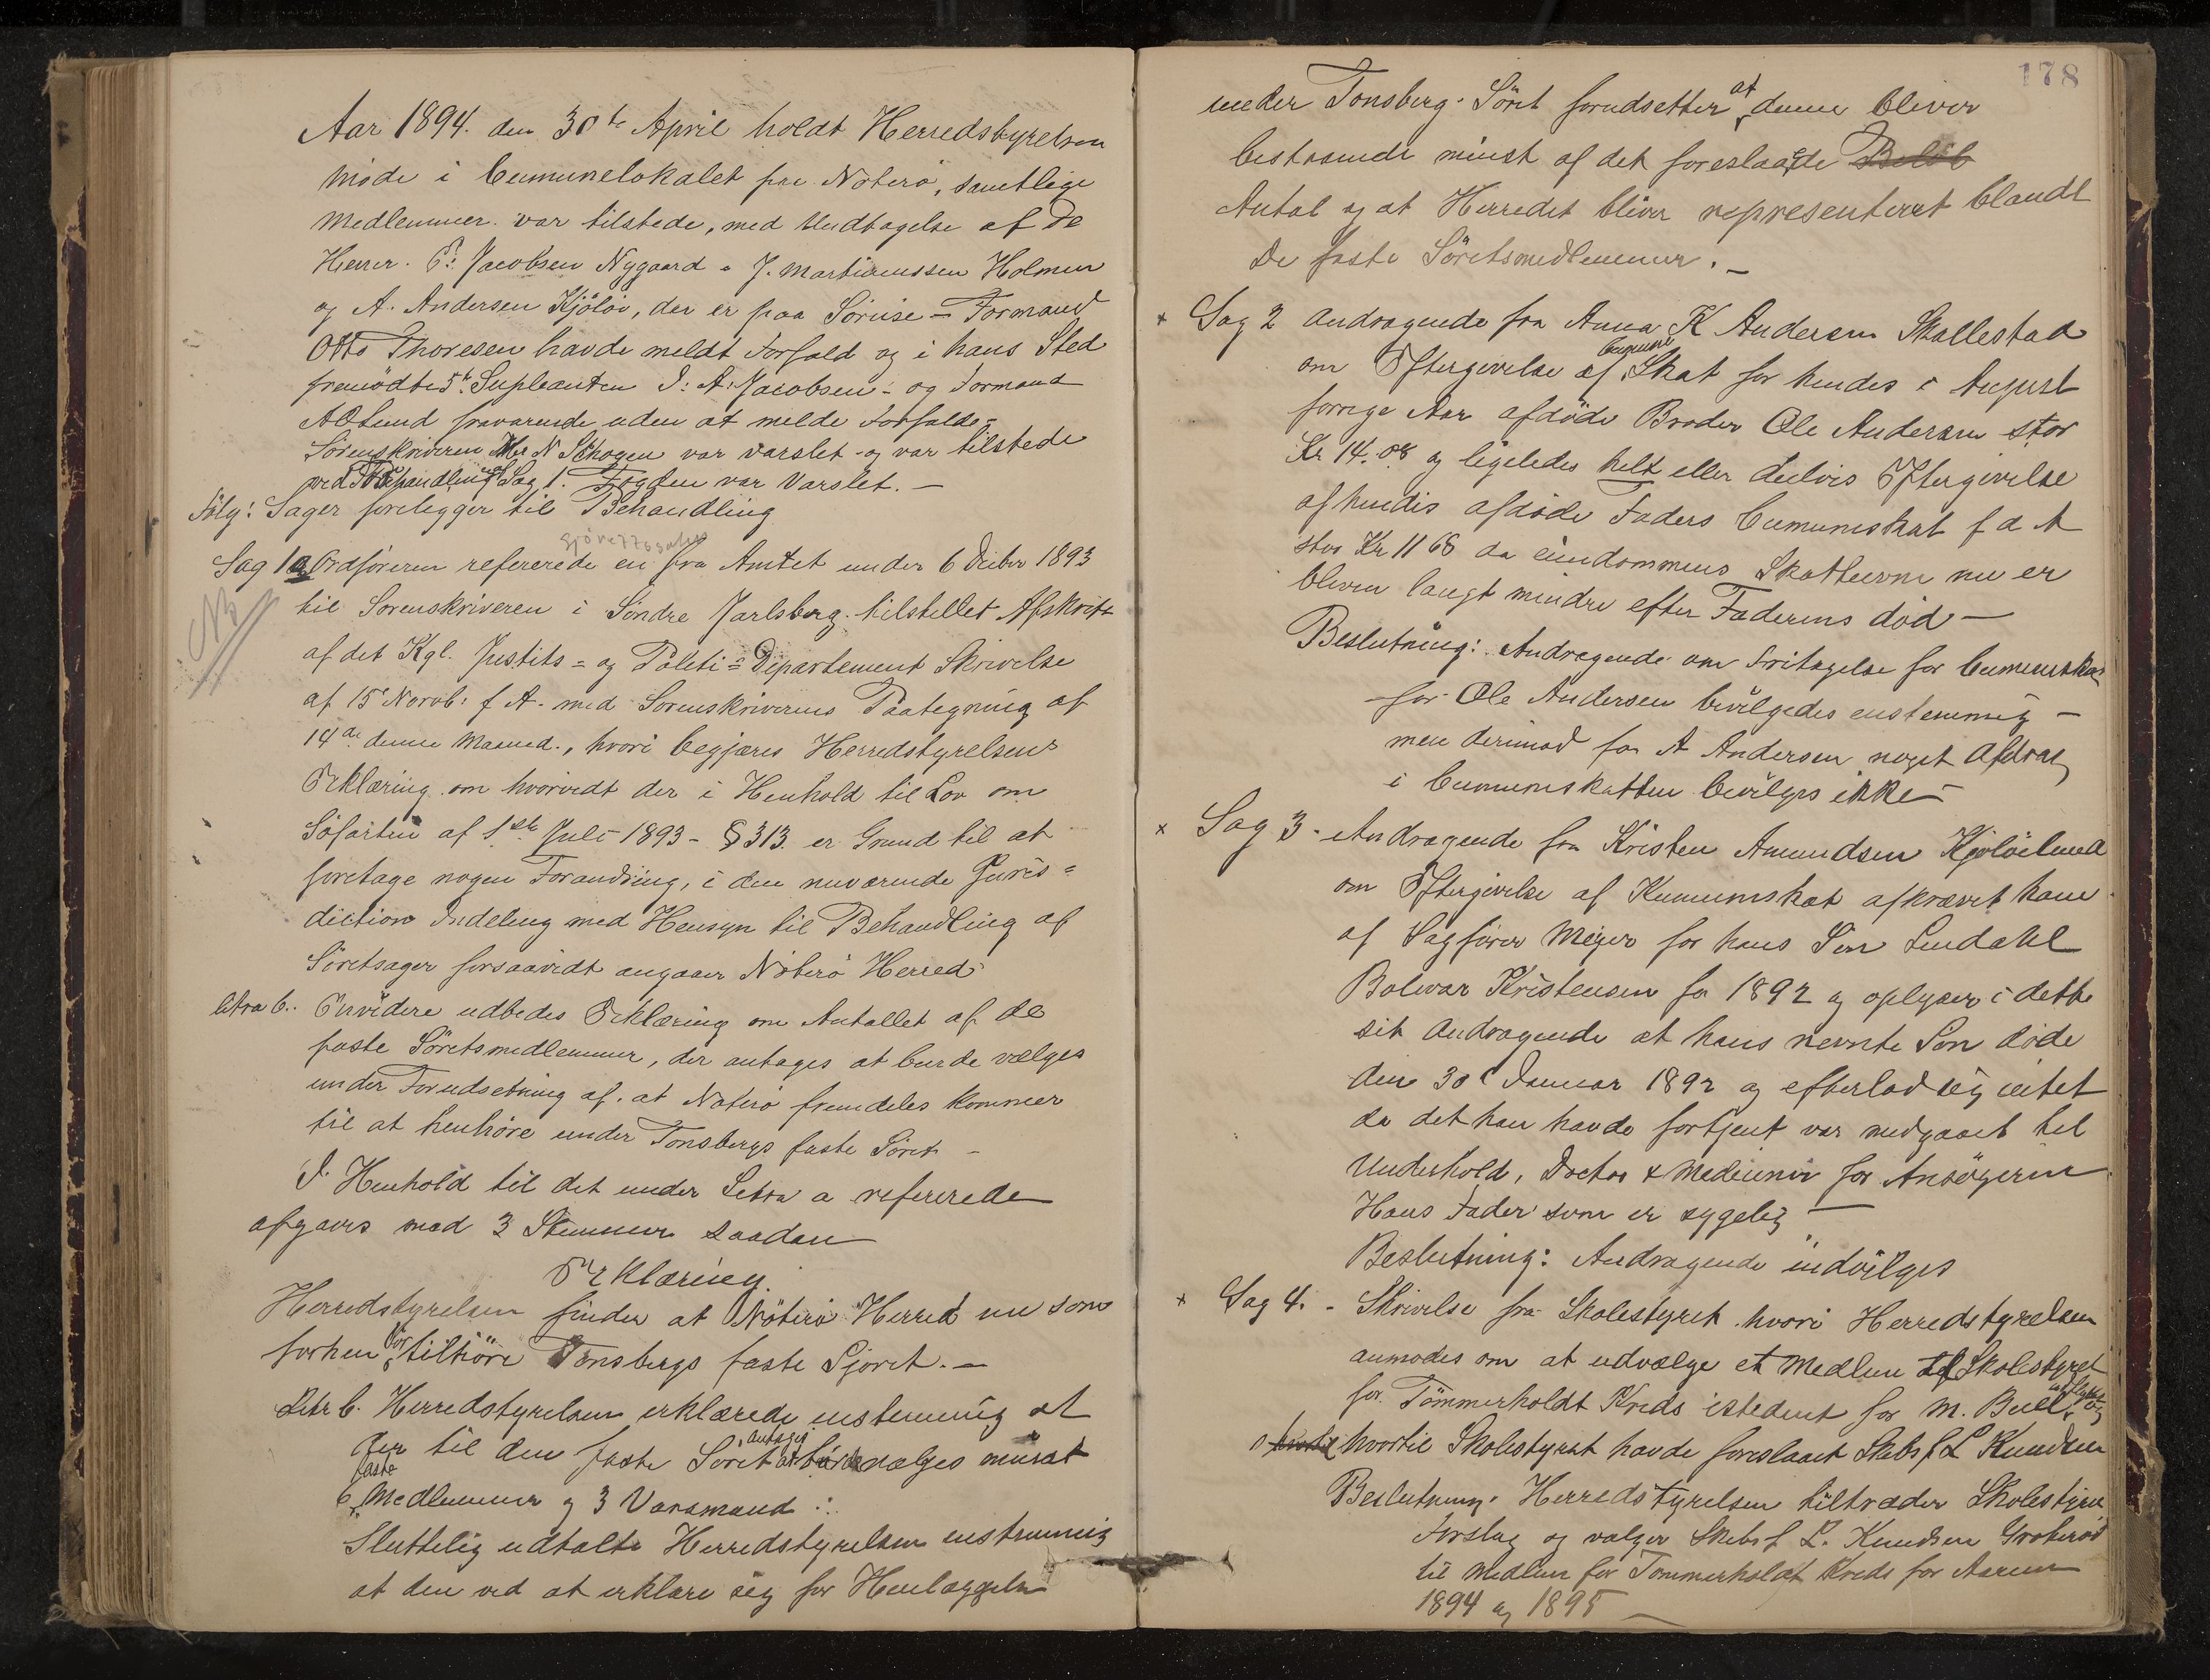 Aar 1894. den 30te April holdt Herredstyrelsen
Møde i Comunelokalet paa Nøterø, samtlige
Medlemmer var tilstede, med Undtagelse af De
Herrer P: Jacobsen Nygaard - J. Martiniussen Holmen
og A. Andersen Kjøløe, der er paa Søreise - Formand
Otto Thoresen havde meldt Forfald og i hans Sted
fremødte 5te Supleanten I: A: Jacobsen - og Formand
A Ølund fraværende uden at melde Forfald -
Sorenskriveren Hr N Schogen var varslet - og var tilstede
ved Behandling af Sag 1. Fogden var Varslet. -
Følg: Sager foreligger til Behandling
Sjørettssaker
Sag 1 a Ordføreren refererede en fra Amtet under 6 Decber 1893
NB
til Sorenskriveren i Søndre Jarlsberg tilstillet Afskrift
af det Kgl. Justits- og Politi-Departement Skrivelse
af 15 Novb. f A. med Sorenskriverens Paategning af
14de denne Maaned, hvori begjæres Herredstyrelsens
Erklæring om hvorvidt der i Henhold til Lov om
Søfarten af 1ste Juli 1893 - § 313 er Grund til at
foretage nogen Forandring, i den nuværende Juris=
diction Indeling med Hensyn til Behandling af
Søretsager forsaavidt angaaer Nøterø Herred
litra b. Envidere udbedes Erklæring om Antallet af de
faste Søretsmedlemmer, der antages at burde vælges
under Forudsetning af at Nøterø fremdeles kommer
til at henhøre under Tønsbergs faste Søret -
I Henhold til det under Letra a refererede
afgaves med 3 Stemmer saadan
Erklæring
Herredstyrelsen finder at Nøterø Herred nu som
forhen bør tilhøre Tønsbergs faste Sjøret. -
Litr b. Herredstyrelsen erklærede enstemmig at
der til den faste Søret antages at burde vælges minst
6 faste Medlemmer og 3 Varamænd :
Sluttelig udtalte Herredstyrelsen enstemmig
at den ved at erklære sig for Henlæggelse
178
under Tønsberg Søret forudsetter at denne bliver
bestaaende minst af det foreslaaede Beløb
Antal og at Herredet bliver representeret blandt
De faste Søretsmedlemmer. -
x Sag 2 Andragende fra Anna K Andersen Skallestad
om Eftergivelse af Comune Skat for hendes i August
forrige Aar afdøde Broder Ole Andersen stor
Kr 14.08 og ligeledes helt eller deelvis Eftergivelse
af hendes afdøde Faders Comuneskat f d A
stor Kr 11 68 da eiendommens Skatteevne nu er
bleven langt mindre efter Faderens død -
Beslutning: Andragende om Fritagelse for Comuneskat
for Ole Andersen bevilgedes enstemmig -
men derimod for A Andersen noget Afdrag
i Comuneskatten bevilges ikke -
x Sag 3 - Andragende fra Kristen Amundsen Kjøløelund
om Eftergivelse af Kumuneskat afkrævet ham
af Sagfører Meyer for hans Søn Lendahl
Bolevar Kristensen for 1892 og oplyser i dette
sit Andragende at hans nevnte Søn døde
den 30 Januar 1892 og efterlod sig intet
da det han havde fortjent var medgaaet til
Underhold, Doctor & Mediciner for Ansøgeren
Hans Fader som er sygelig -
Beslutning: Andragende indvilges
x Sag 4. - Skrivelse fra Skolestyret hvori Herredstyrelsen
anmodes om at udvælge et Medlem til Skolestyret
for Tømmerholdt Kreds istedent for M. Buell
hvortil Skolestyret havde foreslaaet Skibsf L Knudsen
Beslutning. Herredstyrelsen tiltræder Skolestyrets
Forslag og valger Skibsf L. Knudsen Grøterød
til Medlem for Tømmerholdt Kreds for Aarene
1894 og 1895 -